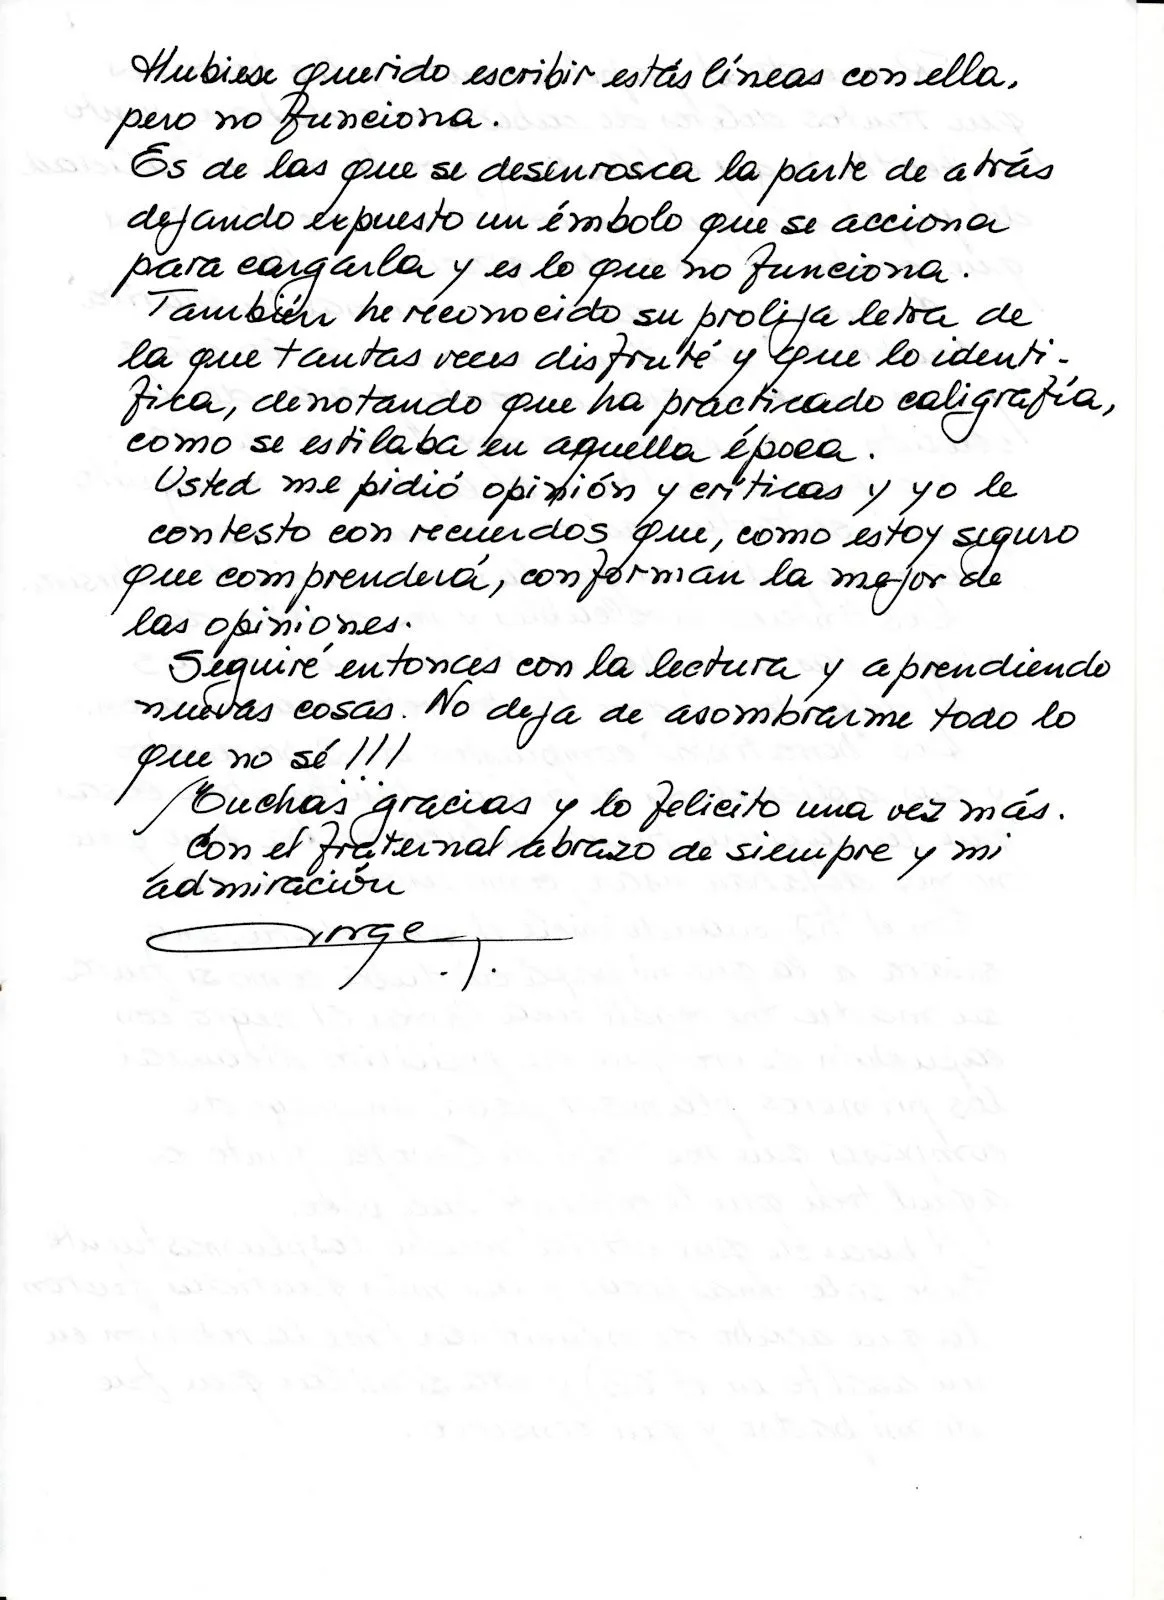 Hubiese querido escribir estás líneas con ella,
pero no funciona.
Es de las que se desenrosca la parte de atrás
dejando expuesto un émbolo que se acciona
para cargarla y es lo que no funciona.
También he reconocido su prolija letra de
la que tantas veces disfruté y que lo identi-
fica, denotando que ha practicado caligrafía,
como se estilaba en aquella época.
Usted me pidió opinión y críticas y yo le
contesto con recuerdos que, como estoy seguro
que comprenderá, conforman la mejor de
las opiniones.
Seguiré entonces con la lectura y aprendiendo
nuevas cosas. No deja de asombrarme todo lo
que no sé!!!
Muchas gracias y lo felicito una vez más.
Con el fraternal abrazo de siempre y mi
admiración
Jorge